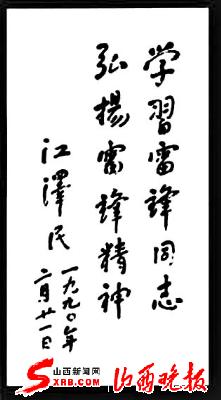 学習雷鋒同志
弘揚雷鋒精神
江澤民
一九九〇年
二月廿一日
山西新闻网
SXRB.COM
山西晚报